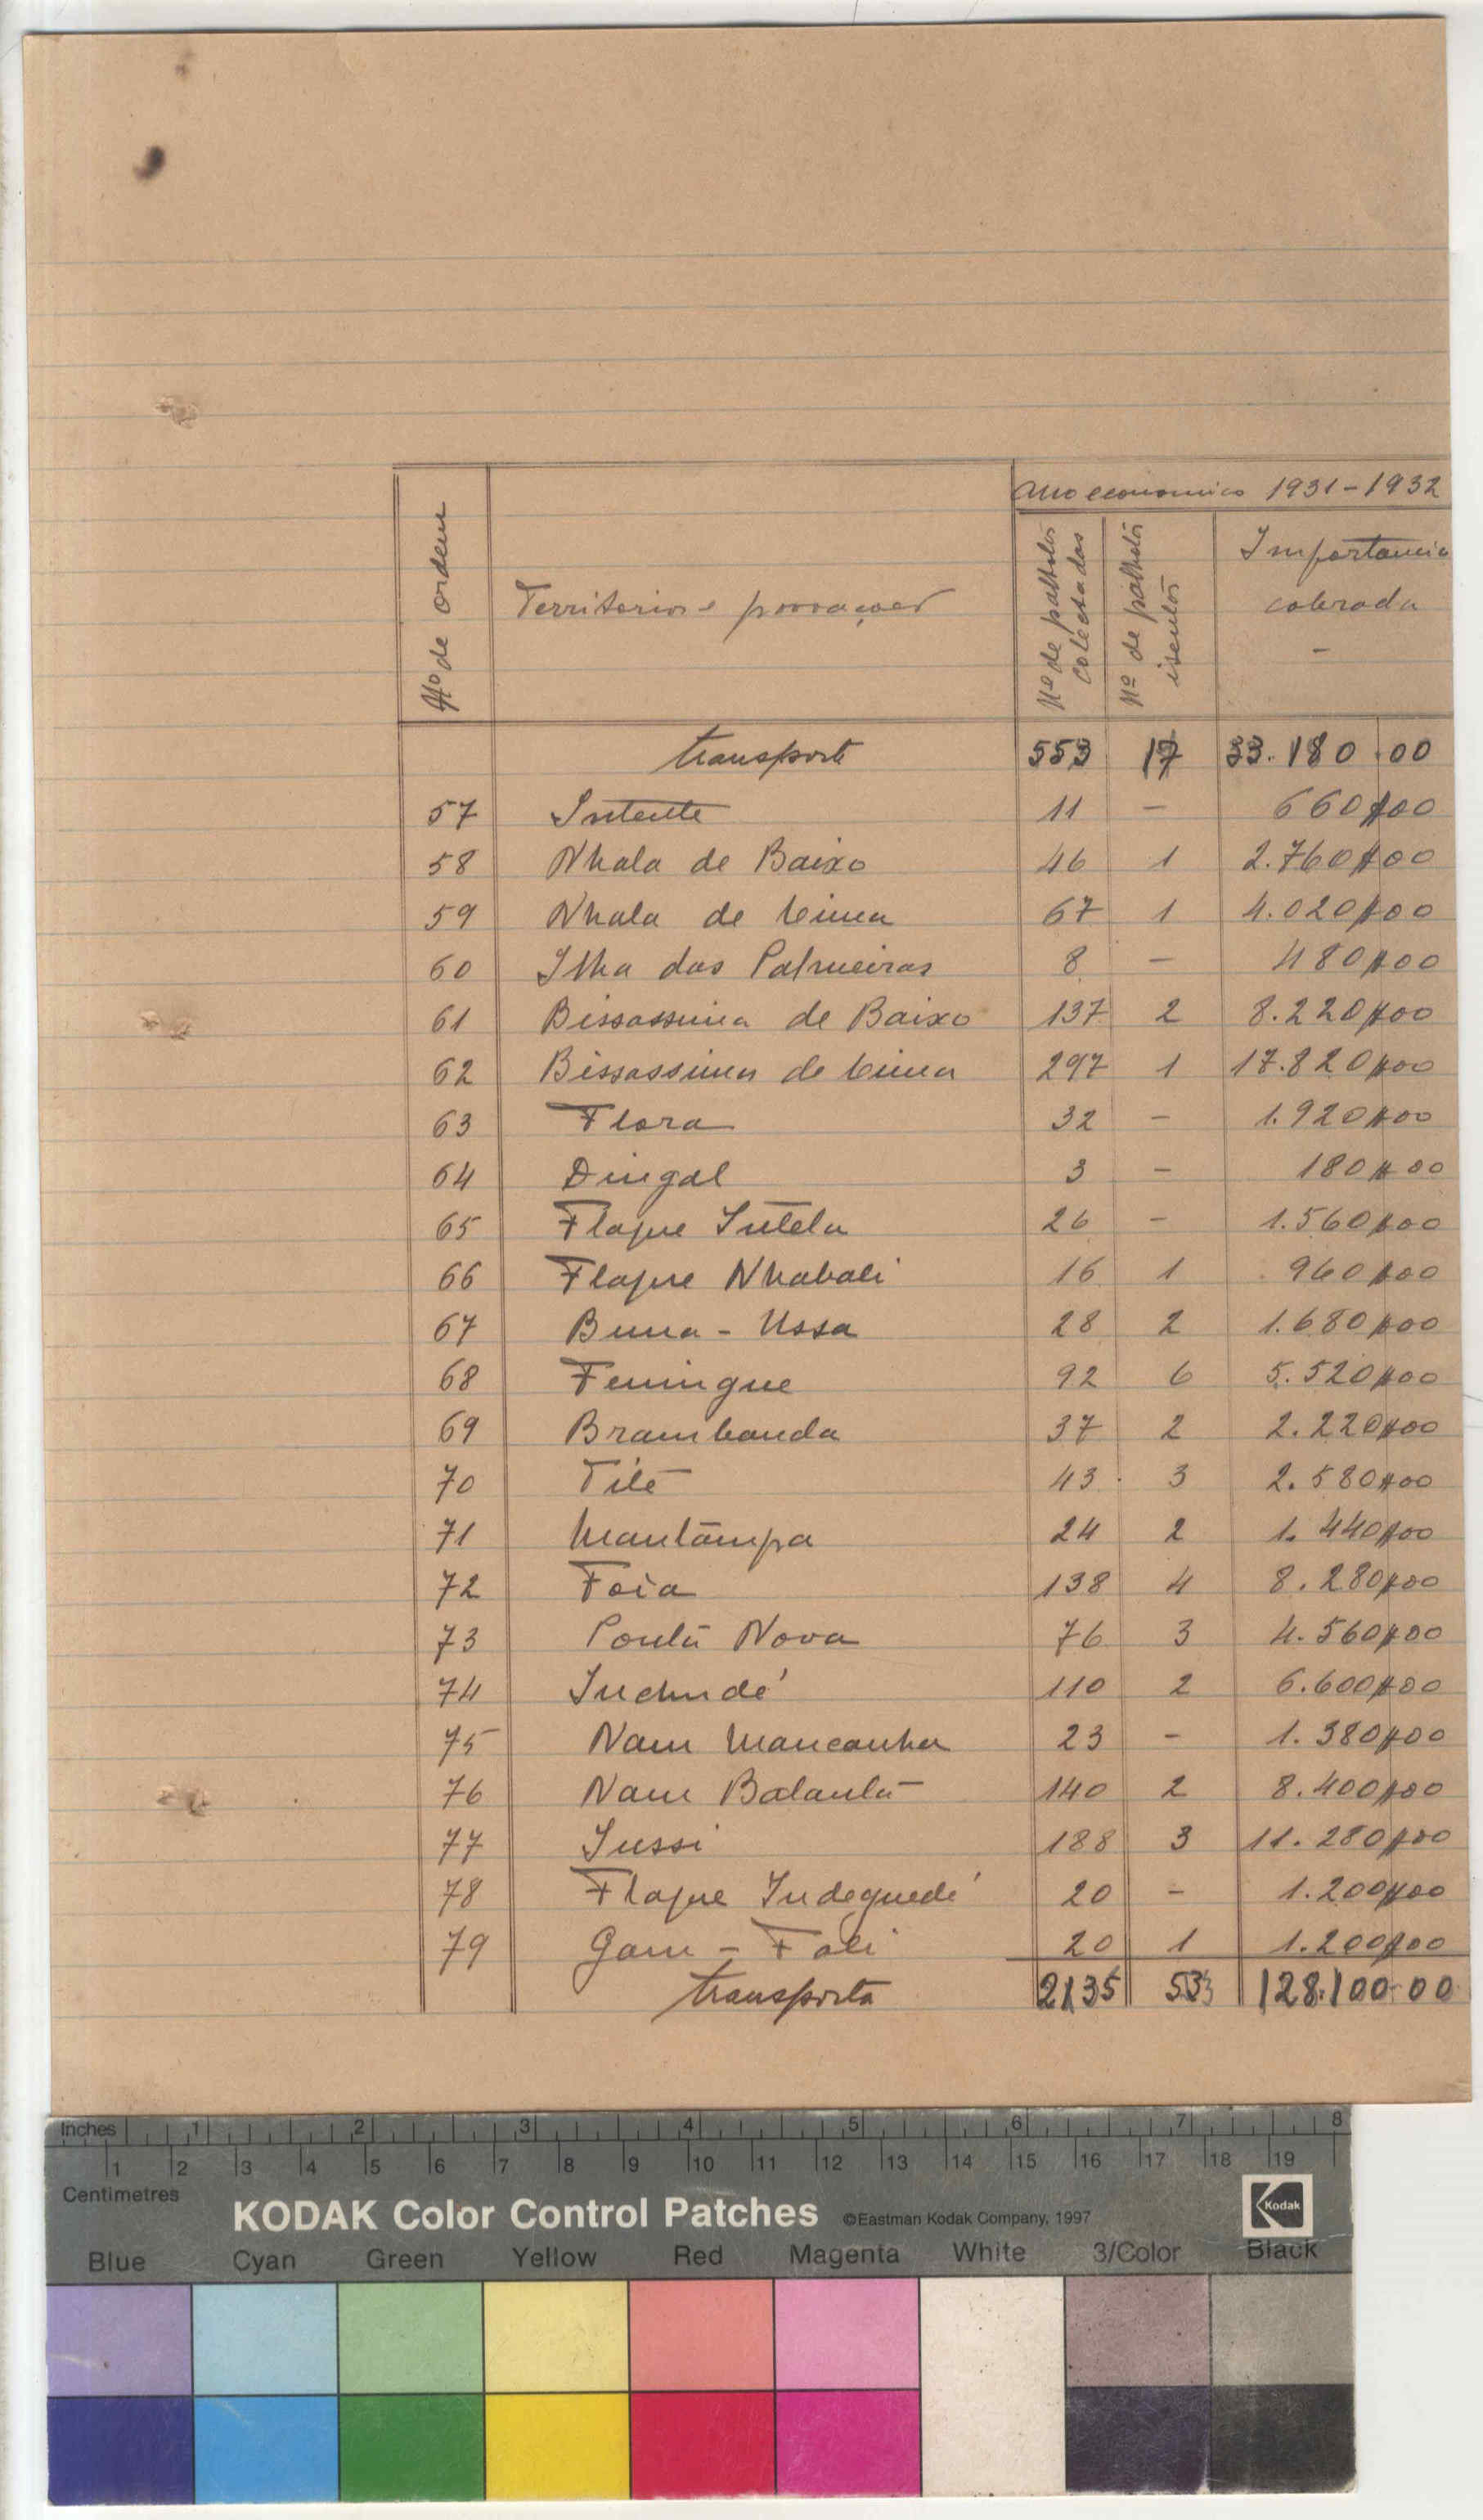 Ano economico 1931-1932
Nº de ordem
Territorios e povoações
Nº de palhotas colectadas
Nº de palhotas isentos
Importancia cobrada
-
transporte 553 17 33.180.00
57 Intente 11 - 660$00
58 Nhala de Baixo 46 1 2.760$00
59 Nhala de Cima 67 1 4.020$00
60 Ilha das Palmeiras 8 - 480$00
61 Bissassima de Baixo 137 2 8.220$00
62 Bissassima de Cima 297 1 17.820$00
63 Flora 32 - 1.920$00
64 Dingal 3 - 180$00
65 Flaque Intela 26 - 1.560$00
66 Flaque Nhabali 16 1 960$00
67 Buma - Ussa 28 2 1.680$00
68 Feningue 92 6 5.520$00
69 Brambanda 37 2 2.220$00
70 Tite 43 3 2.580$00
71 Mantampa 24 2 1.440$00
72 Foia 138 4 8.280$00
73 Ponta Nova 76 3 4.560$00
74 Inchudé 110 2 6.600$00
75 Nam Mancanha 23 - 1.380$00
76 Nam Balanta 140 2 8.400$00
77 Jussi 188 3 11.280$00
78 Flaque Indeguedé 20 - 1.200$00
79 Gam - Fali 20 1 1.200$00
transporta 2135 53 128.100.00
Inches 1 2 3 4 5 6 7 8
1 2 3 4 5 6 7 8 9 10 11 12 13 14 15 16 17 18 19
Centimetres
KODAK Color Control Patches ©Eastman Kodak Company, 1997 Kodak
Blue Cyan Green Yellow Red Magenta White 3/Color Black